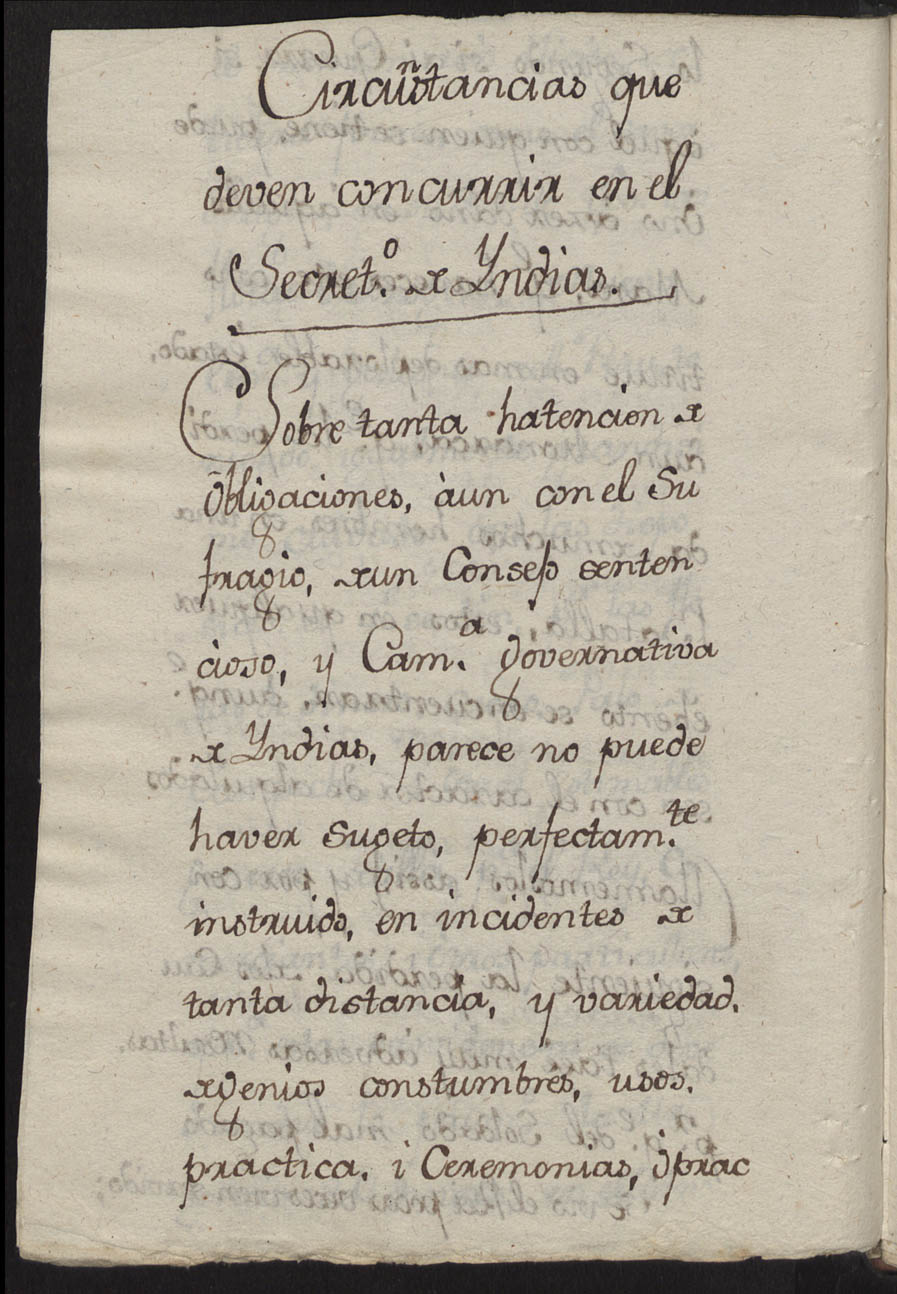 Circunstancias que
deven concurrir en el
Secret.º de Yndias.
Sobre tanta hatencion de
Obligaciones, àun con el Su
fragio, de un Consejo senten
cioso, y Cam.ª governativa
de Yndias, parece no puede
haver Sugeto, perfectam.te
instruido, en incidentes de
tanta distancia, y variedad.
de genios constumbres, usos.
practica. i Ceremonias, de prac